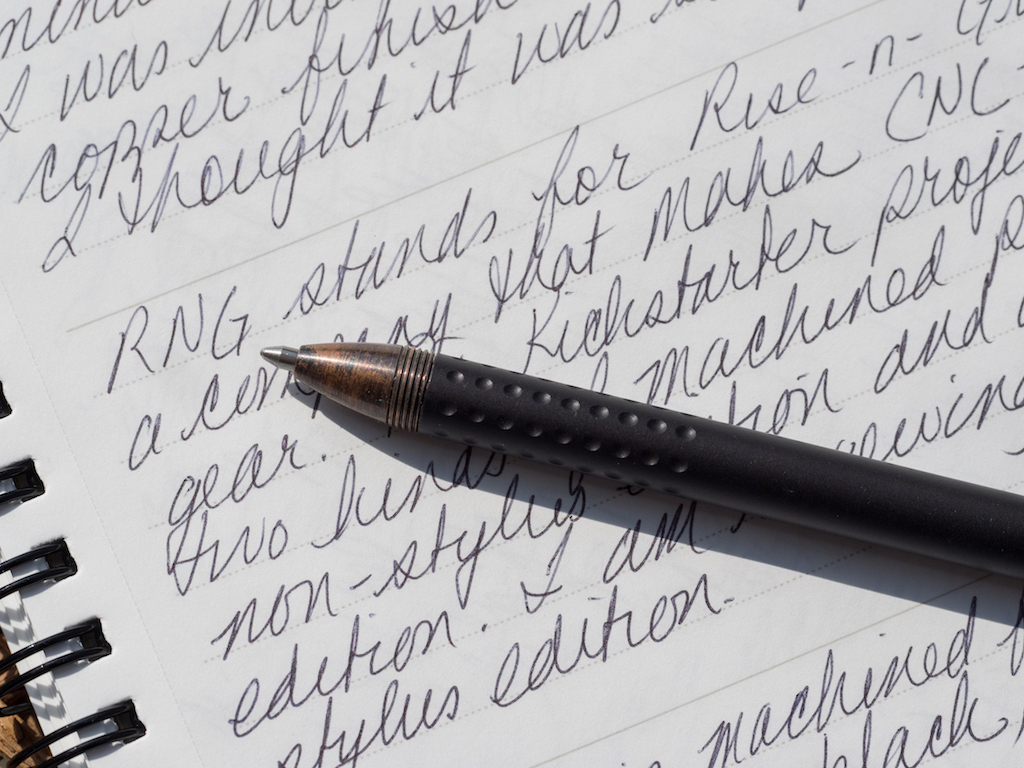 I was
copper finish
I thought it was
RNG stands for Rise-n-
a company that makes CNC
gear. Kickstarter
two kinds machined
non-stylus and
edition. I am
stylus edition.
machined
black